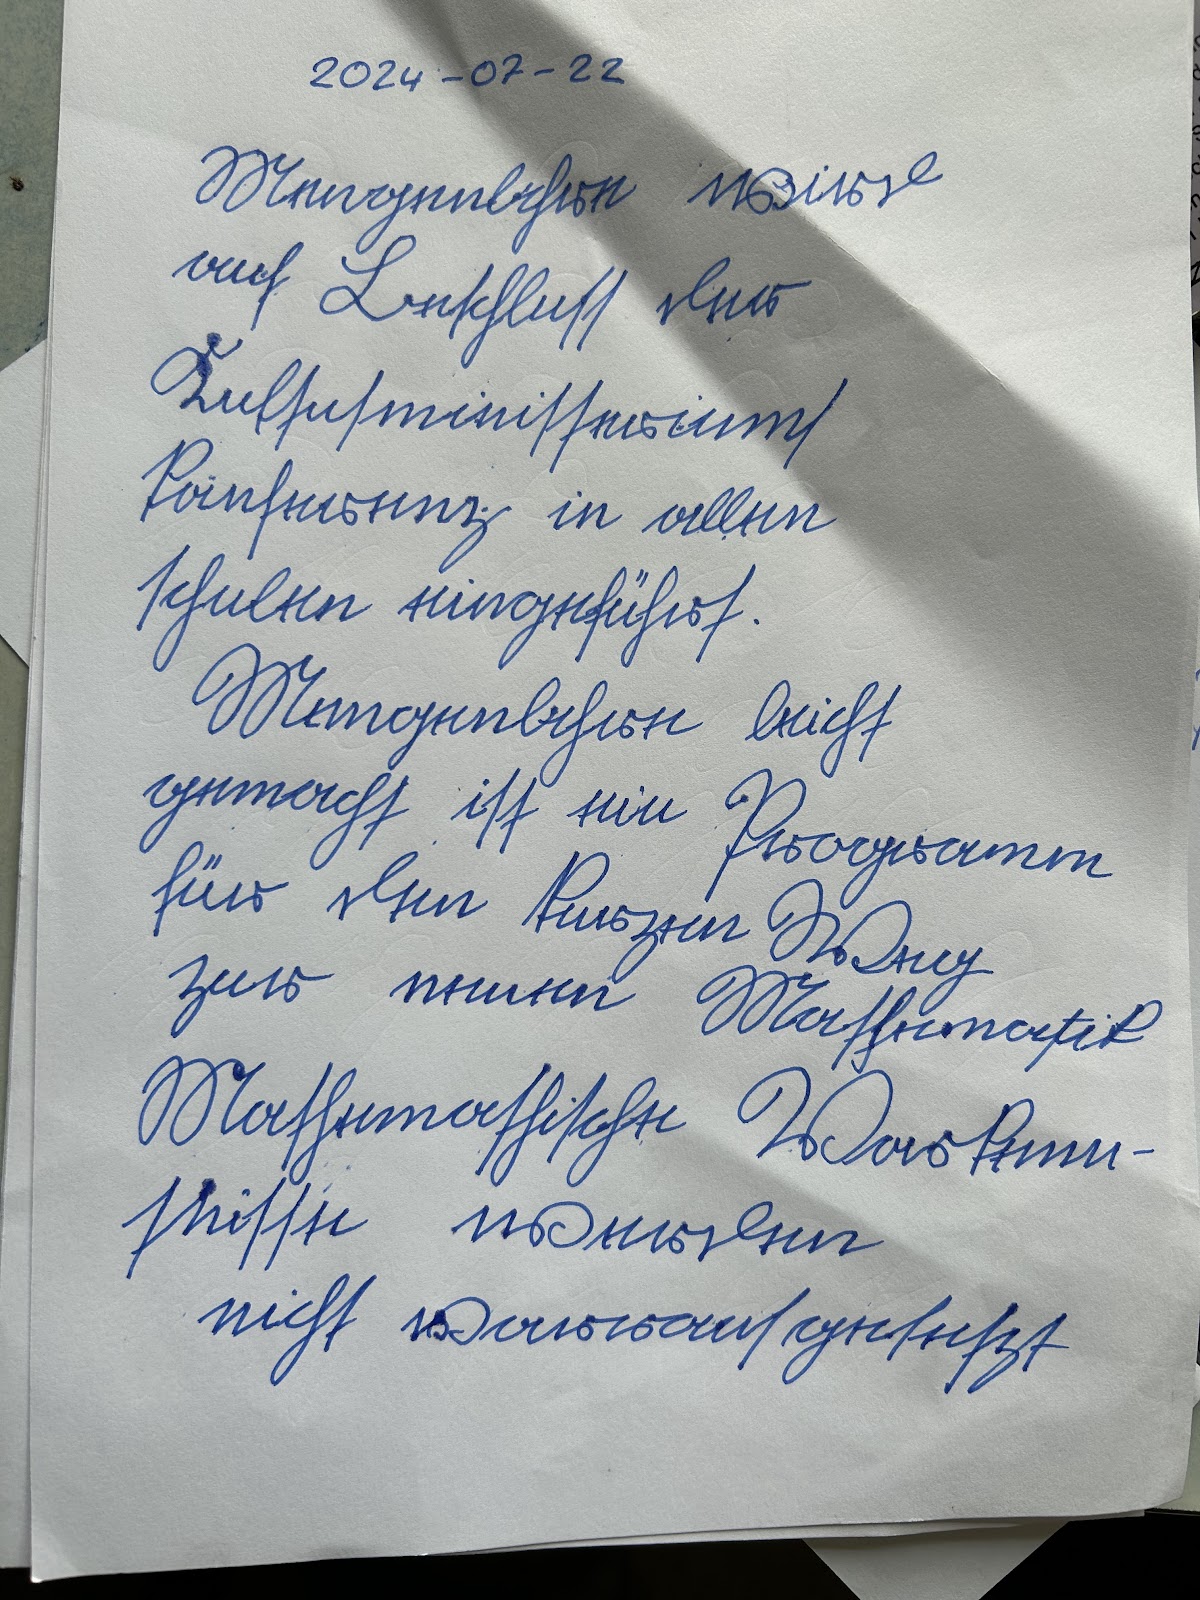 2024-07-22
Mengenlehre wird
auf Beschluss der
Kultusministerium/
konferenz in allen
schulen eingeführt.
Mengenlehre leicht
gemacht ist ein Programm
für den kurzen Weg
zur neuen Mathematik
Mathematische Vorkennt-
nisse werden
nicht vorausgesetzt